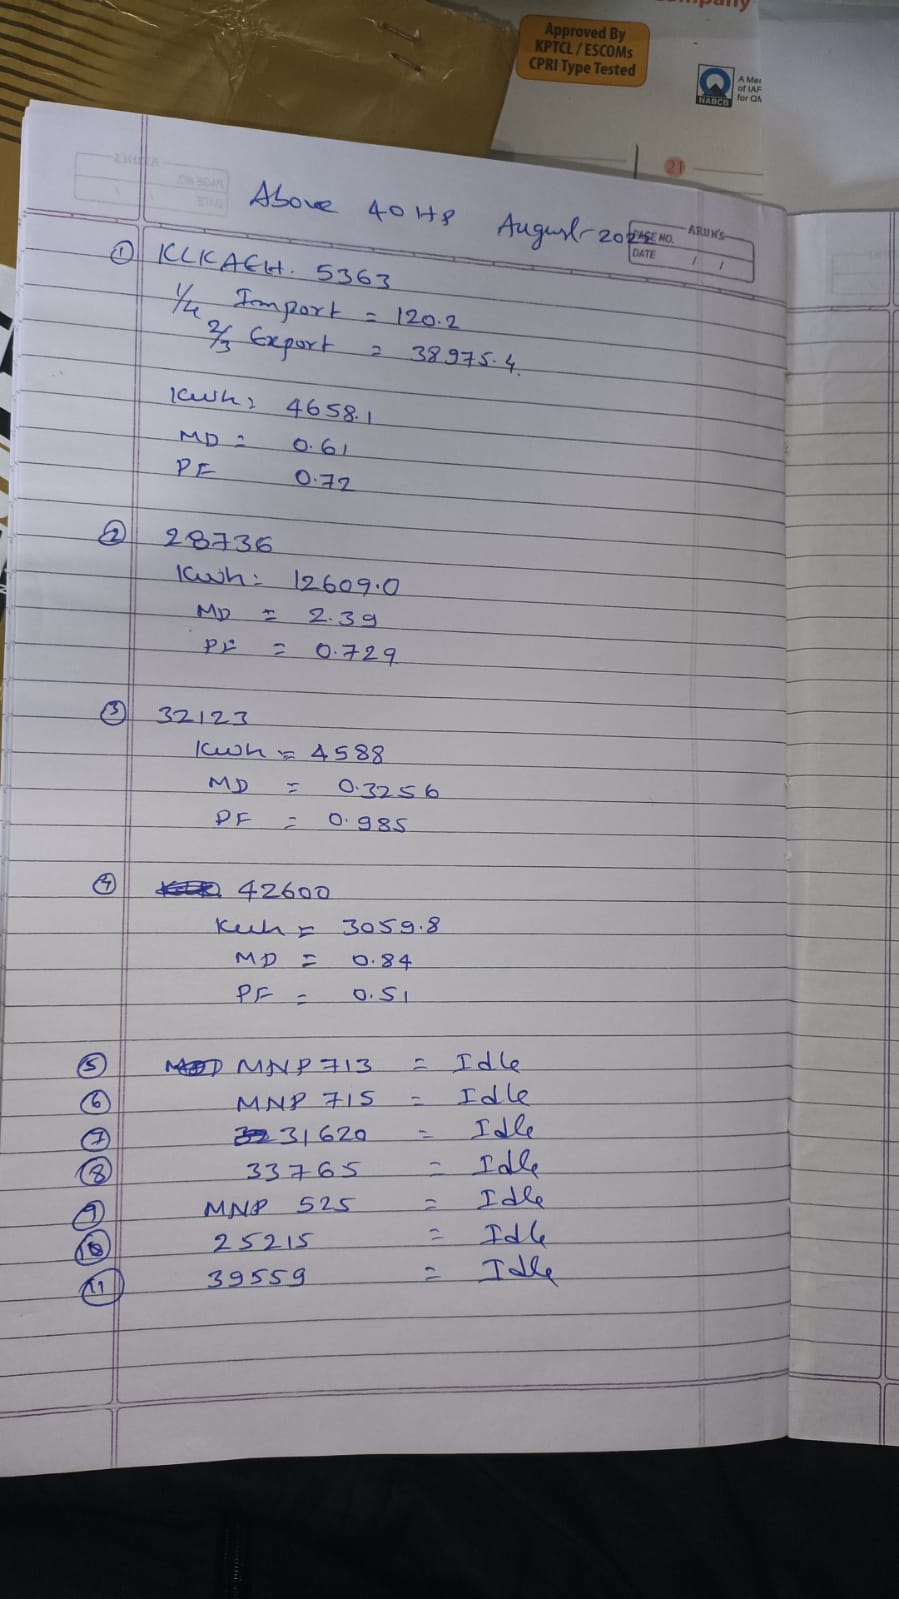 Company
Approved By
KPTCL / ESCOMs
CPRI Type Tested
NABCB
A Mem
of IAF
for QM
21
Above 40 HP August-202
ARUN'S
PAGE NO.
DATE / /
① KLKAEH. 5363
Import = 120.2
Export = 38975.4
Kwh = 4658.1
MD = 0.61
PF 0.72
② 28736
Kwh = 12609.0
MD = 2.39
PF = 0.729
③ 32123
Kwh = 4588
MD = 0.3256
PF = 0.985
④ 42600
Kwh = 3059.8
MD = 0.84
PF = 0.51
⑤ MNP 713 = Idle
⑥ MNP 715 = Idle
⑦ 31620 = Idle
⑧ 33765 = Idle
⑨ MNP 525 = Idle
⑩ 25215 = Idle
⑪ 39559 = Idle